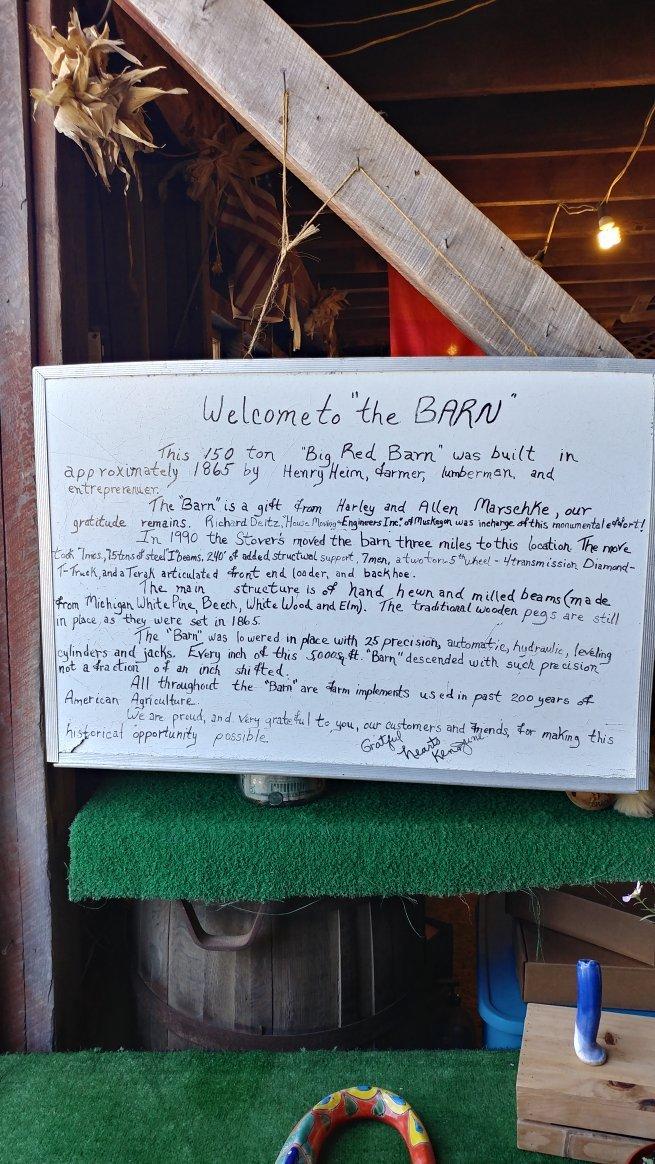 Welcome to "the BARN"
This 150 ton "Big Red Barn" was built in
approximately 1865 by Henry Heim, farmer, lumberman, and
entreprerenuer.
The "Barn" is a gift from Harley and Allen Marschke, our
gratitude remains. Richard Deitz, "House Moving-Engineers Inc." of Muskegon was incharge of this monumental effort!
In 1990 the Stover's moved the barn three miles to this location. The move
took 7mos., 75 tons of steel "I" beams, 240' of added structural support, 7 men, a two ton 5th wheel - 4 transmission Diamond-
T-Truck, and a Terak articulated front end loader, and backhoe.
The main structure is of hand hewn and milled beams (made
from Michigan White Pine, Beech, White Wood and Elm). The traditional wooden pegs are still
in place, as they were set in 1865.
The "Barn" was lowered in place with 25 precision, automatic, hydraulic, leveling
cylinders and jacks. Every inch of this 5000sq.ft. "Barn" descended with such precision
not a fraction of an inch shifted.
All throughout the "Barn" are farm implements used in past 200 years of
American Agriculture.
We are proud, and very grateful to you, our customers and friends, for making this
historical opportunity possible.
Gratful
hearts